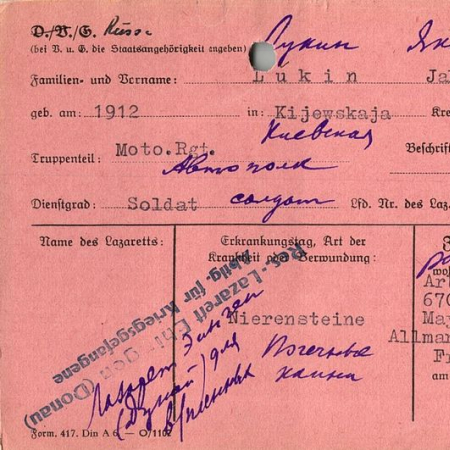 D./V./G. Russe
(bei V. u. G. die Staatsangehörigkeit angeben) Лукин Як
Familien- und Vorname: Lukin Ja
geb. am: 1912 in: Kijewskaja Kre
Киевская
Truppenteil: Moto.Rgt. Beschrift
Автополк
Dienstgrad: Soldat солдат Lfd. Nr. des Laz.
Name des Lazaretts:
Erkrankungstag, Art der
Krankheit oder Verwundung:
Res.-Lazarett Ehingen (Donau)
Abtlg. für Kriegsgefangene
Nierensteine
Почечные
камни
Лазарет Эинген
(Дунай) для
в/пленных
wo
Art
670
May
Allman
Fr
am
Form. 417. Din A 6. — O/1102